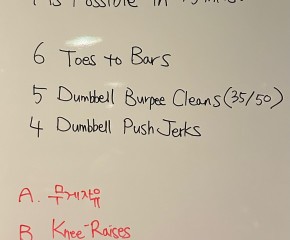 6 Toes to Bars
5 Dumbbell Burpee Cleans (35/50)
4 Dumbbell Push Jerks
A. 무게자유
B Knee-Raises